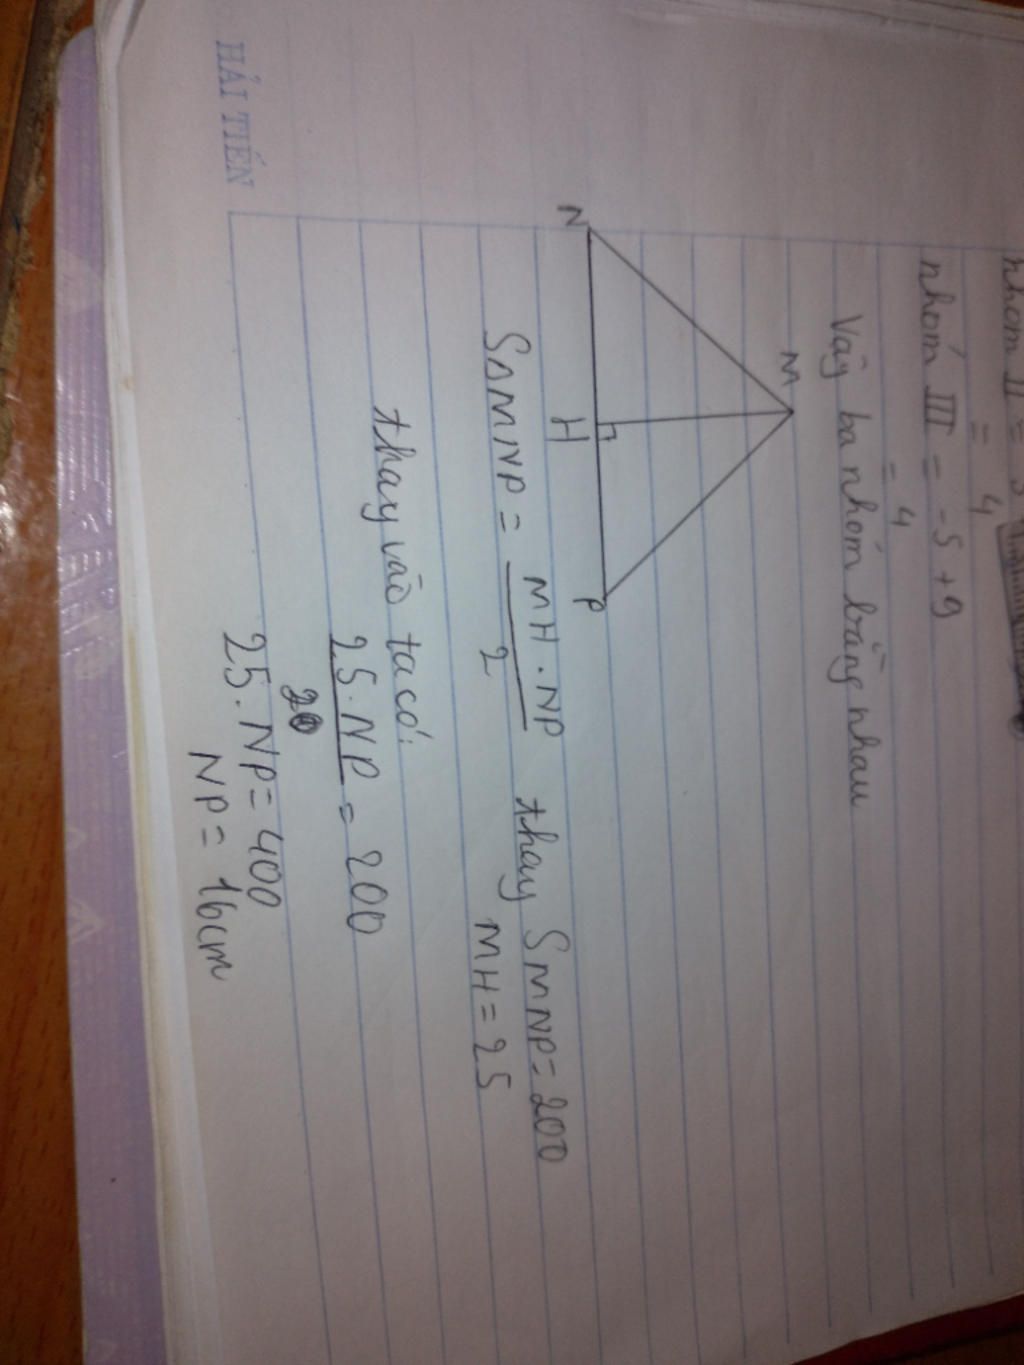 nhóm II =
= 4
nhóm III = -5 + 9
= 4
Vậy ba nhóm bằng nhau
M
N H P
S∆MNP = MH . NP / 2 thay SMNP = 200
MH = 25
thay vào ta có:
25 . NP / 2 = 200
25 . NP = 400
NP = 16cm
HẢI TIẾN